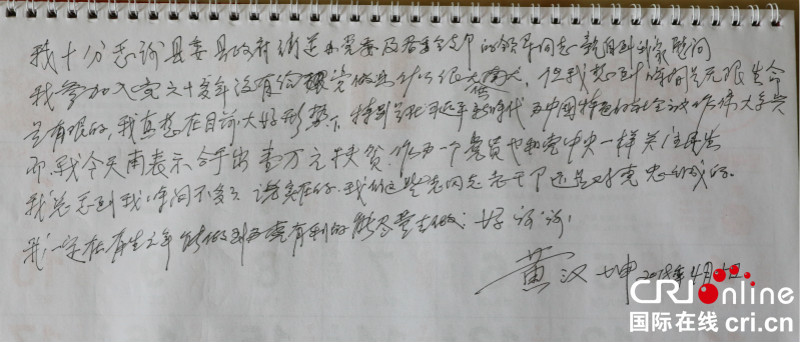 我十分感谢县委县政府街道办党委及各重金支部的领导同志亲自到我家慰问
我参加入党六十多年没有给党做出什么很大伟大，但我想到时间是无限生命
是有限的，我真想在目前大好形势下，特别是习近平新时代为中国特色的社会主义作伟大
而，我今天表示合手出壹万元扶贫，作为一个党员也和党中央一样关注民生
我总感到我时间不多了，诸实在的，我们这些老同志老干部还是对党忠诚的。
我一定在有生之年能做到为党有利的能尽量去做：好 谢谢！
黄汉坤 2018年4月 日
CRI online
国际在线 cri.cn